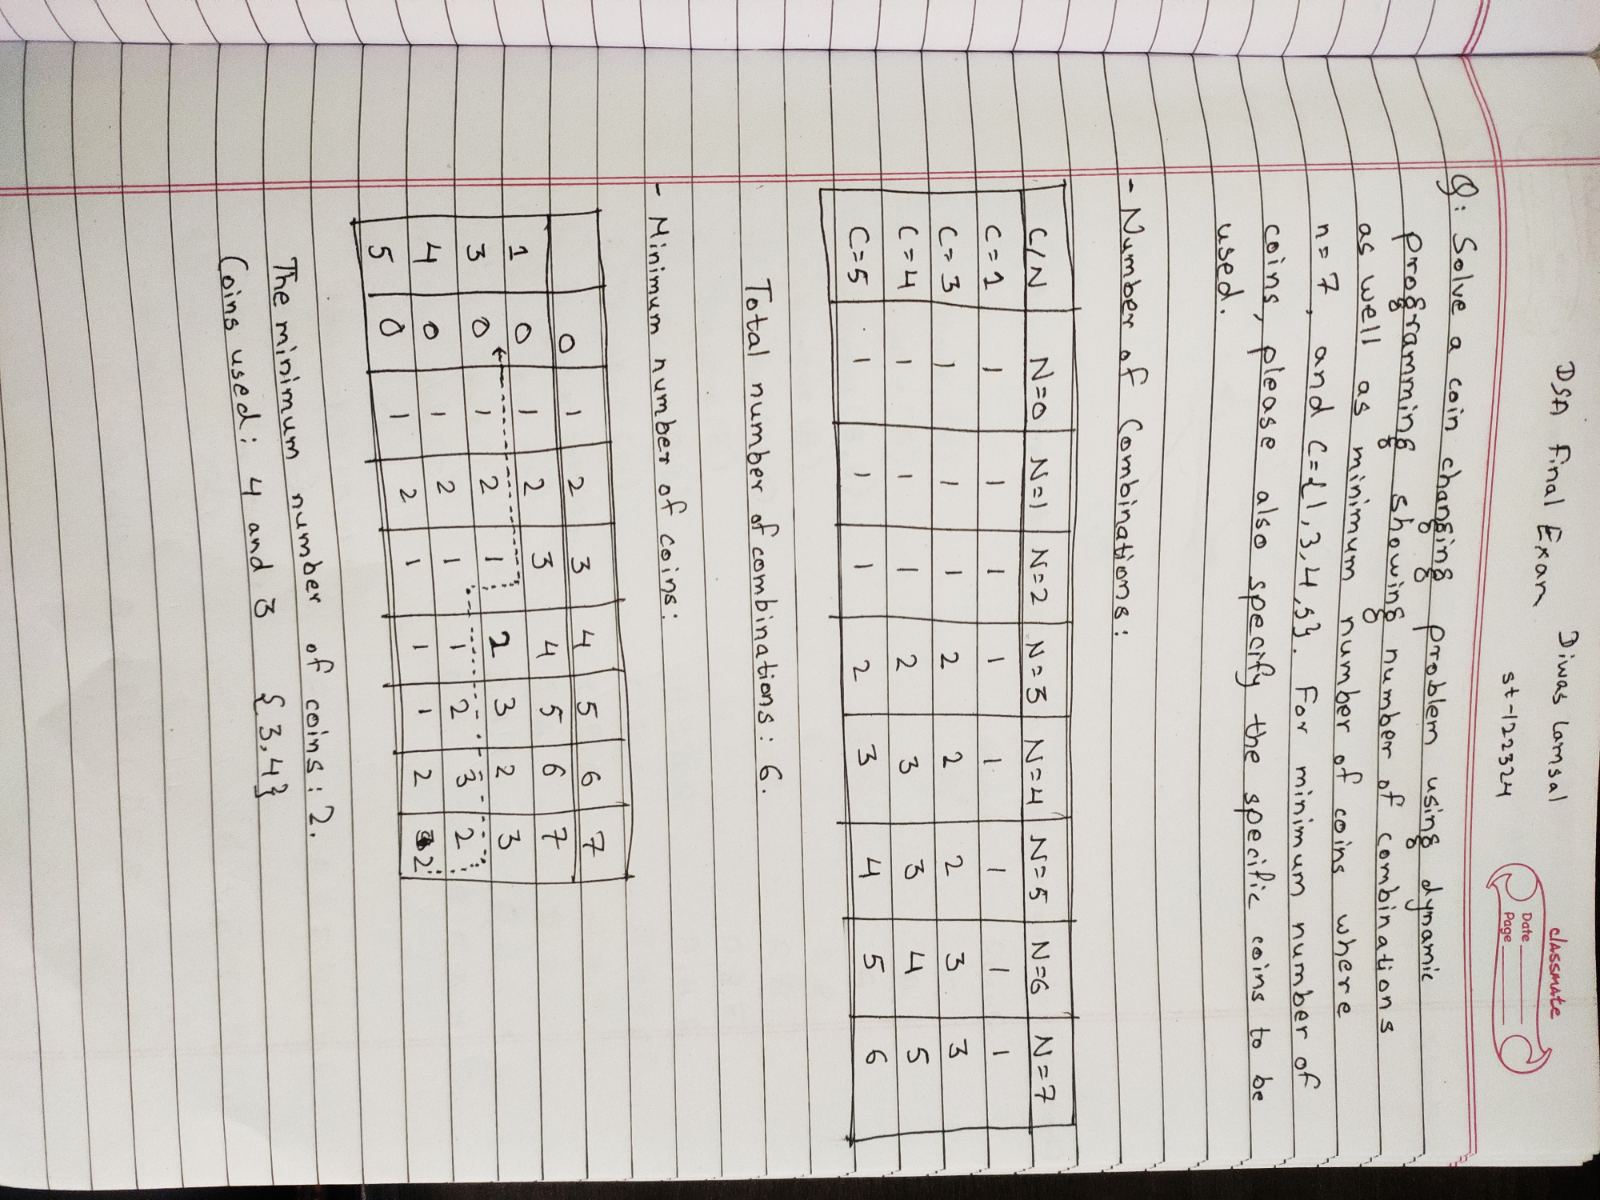 DSA Final Exam Diwas Lamsal
st-122324
classmate
Date
Page
Q: Solve a coin changing problem using dynamic
programming showing number of combinations
as well as minimum number of coins where
n=7, and C={1,3,4,5}. For minimum number of
coins, please also specify the specific coins to be
used.
- Number of Combinations:
C/N N=0 N=1 N=2 N=3 N=4 N=5 N=6 N=7
C=1 1 1 1 1 1 1 1 1
C=3 1 1 1 2 2 2 3 3
C=4 1 1 1 2 3 3 4 5
C=5 1 1 1 2 3 4 5 6
Total number of combinations: 6.
- Minimum number of coins:
0 1 2 3 4 5 6 7
1 0 1 2 3 4 5 6 7
3 0 1 2 1 2 3 2 3
4 0 1 2 1 1 2 3 2
5 0 1 2 1 1 1 2 2
The minimum number of coins: 2.
Coins used: 4 and 3 {3,4}